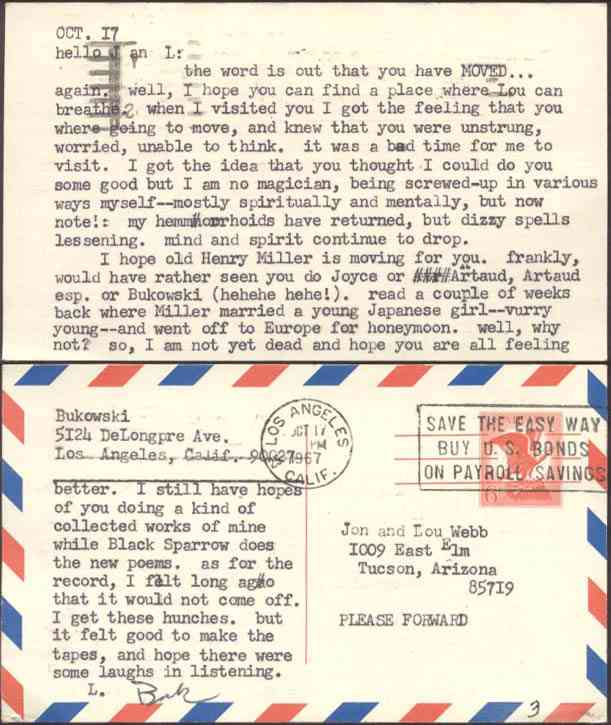 OCT. I7
hello J an L:
the word is out that you have MOVED...
again. well, I hope you can find a place where Lou can
breathe. when I visited you I got the feeling that you
where going to move, and knew that you were unstrung,
worried, unable to think. it was a bad time for me to
visit. I got the idea that you thought I could do you
some good but I am no magician, being screwed-up in various
ways myself--mostly spiritually and mentally, but now
note!: my hemmhorrhoids have returned, but dizzy spells
lessening. mind and spirit continue to drop.
I hope old Henry Miller is moving for you. frankly,
would have rather seen you do Joyce or Artaud, Artaud
esp. or Bukowski (hehehe hehe!). read a couple of weeks
back where Miller married a young Japanese girl--vurry
young--and went off to Europe for honeymoon. well, why
not? so, I am not yet dead and hope you are all feeling
Bukowski
5I24 DeLongpre Ave.
Los Angeles, Calif. 90027
LOS ANGELES
OCT 17
PM
1967
CALIF.
SAVE THE EASY WAY
BUY U.S. BONDS
ON PAYROLL SAVINGS
6c
better. I still have hopes
of you doing a kind of
collected works of mine
while Black Sparrow does
the new poems. as for the
record, I felt long ago
that it would not come off.
I get these hunches. but
it felt good to make the
tapes, and hope there were
some laughs in listening.
L. Buk
Jon and Lou Webb
I009 East Elm
Tucson, Arizona
857I9
PLEASE FORWARD
3